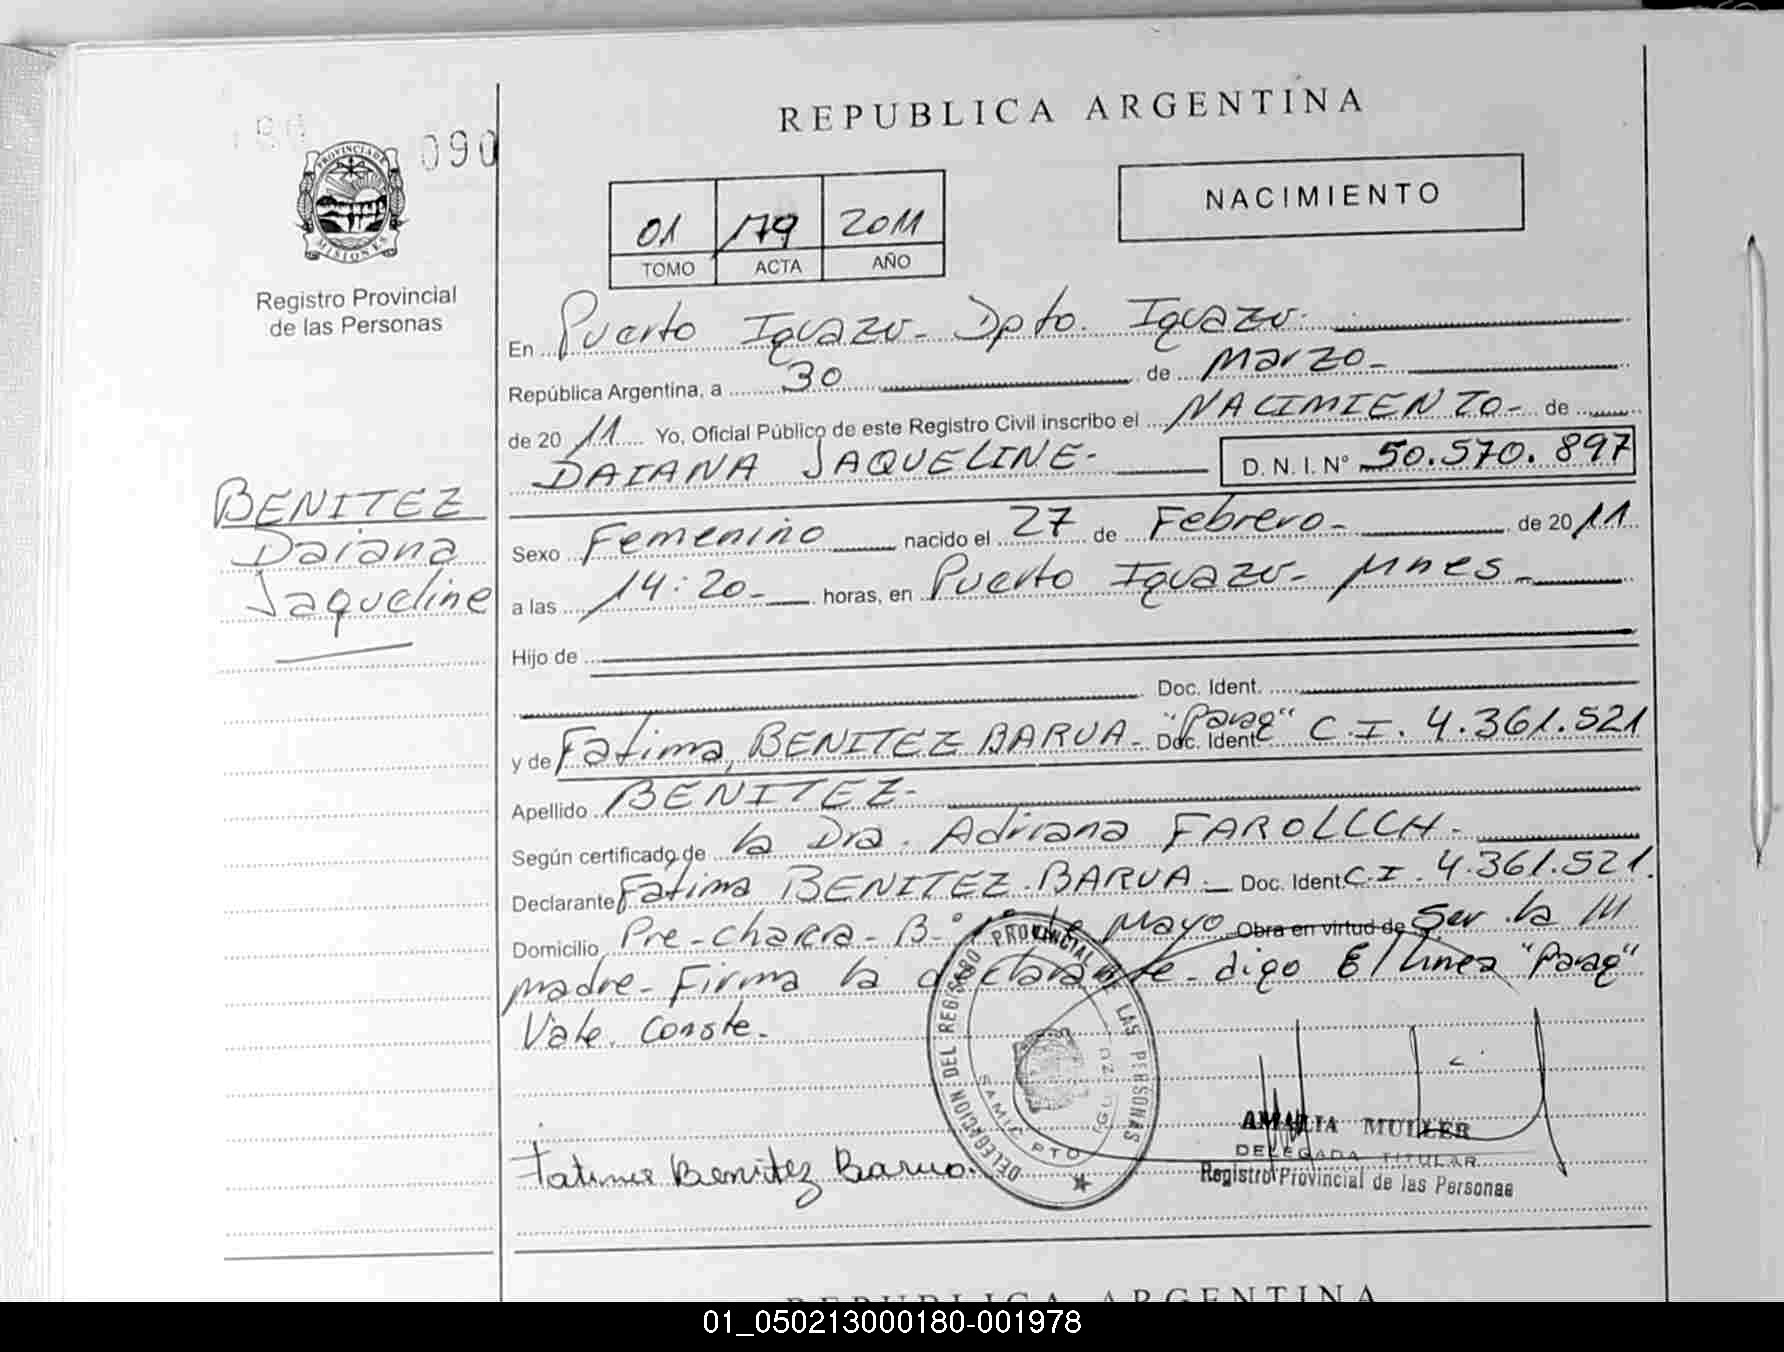 REPUBLICA ARGENTINA
090
PROVINCIA DE
MISIONES
Registro Provincial
de las Personas
01 179 2011
TOMO ACTA AÑO
NACIMIENTO
En Puerto Iguazu - Dpto. Iguazu.
República Argentina, a 30 de Marzo -
de 20 11 Yo, Oficial Público de este Registro Civil inscribo el NACIMIENTO - de
DAIANA JAQUELINE - D. N. I. N° 50.570.897
BENITEZ
Daiana
Jaqueline
Sexo Femenino nacido el 27 de Febrero - de 20 11
a las 14:20 - horas, en Puerto Iguazu - Mnes -
Hijo de
Doc. Ident.
y de Fatima, BENITEZ BARUA - Doc. Ident. "Parag" C.I. 4.361.521
Apellido BENITEZ -
Según certificado de la Dra. Adriana
Declarante Fatima BENITEZ BARUA - Doc. Ident C.I. 4.361.521.
Domicilio Pre-chacra - B° 1° de Mayo Obra en virtud de Ser la
madre - Firma la declarante - digo E/linea "Parag"
Vale. Conste -
DELEGACION DEL REGISTRO PROVINCIAL DE LAS PERSONAS
SAMIC PTO IGUAZU
Fatima Benitez Barua.
AMALIA MULLER
DELEGADA TITULAR
Registro Provincial de las Personas
REPUBLICA ARGENTINA
01_050213000180-001978